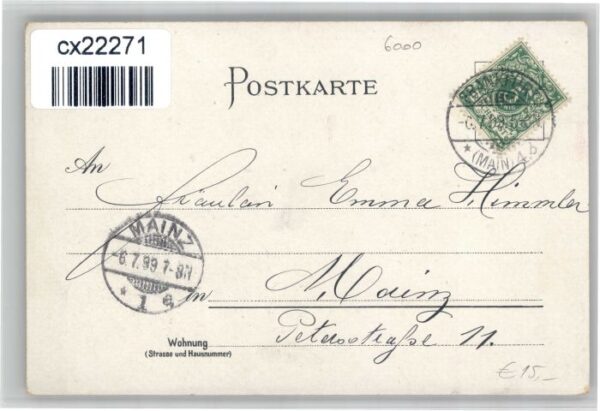 cx22271
6000
POSTKARTE
(MAIN) 4 b
An
Fräulein Emma Himmler
MAINZ
6.7.99 7-8N
* 1 e
in Mainz
Petersstraße 11.
Wohnung
(Strasse und Hausnummer)
€ 15,-